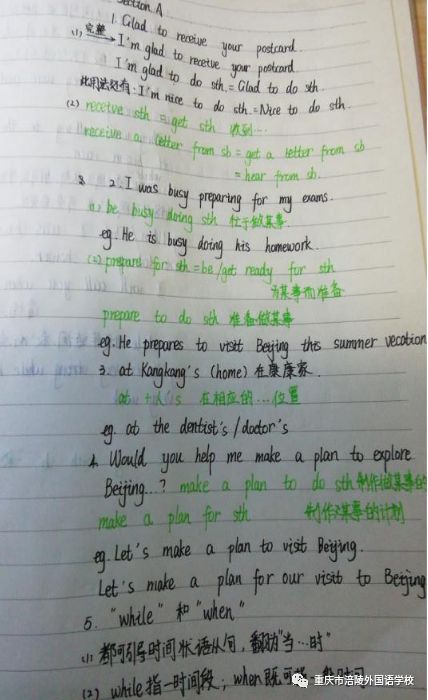 Section A
1. Glad to receive your postcard.
(1) 完整 I'm glad to receive your postcard.
I'm glad to do sth. = Glad to do sth.
此用法还有: I'm nice to do sth. = Nice to do sth.
(2) receive sth = get sth 收到…
receive a letter from sb = get a letter from sb
= hear from sb.
2. I was busy preparing for my exams.
(1) be busy doing sth 忙于做某事.
eg. He is busy doing his homework.
(2) prepare for sth = be/get ready for sth
为某事而准备
prepare to do sth 准备做某事
eg. He prepares to visit Beijing this summer vecation
3. at Kangkang's (home) 在康康家.
at + 人's 在相应的…位置
eg. at the dentist's / doctor's
4. Would you help me make a plan to explore
Beijing...? make a plan to do sth 制作做某事的
make a plan for sth 制作某事的计划
eg. Let's make a plan to visit Beijing.
Let's make a plan for our visit to Beijing
5. "while" 和 "when"
(1) 都可引导时间状语从句, 翻为"当…时"
(2) while 指一时间段; when 既可指
重庆市涪陵外国语学校